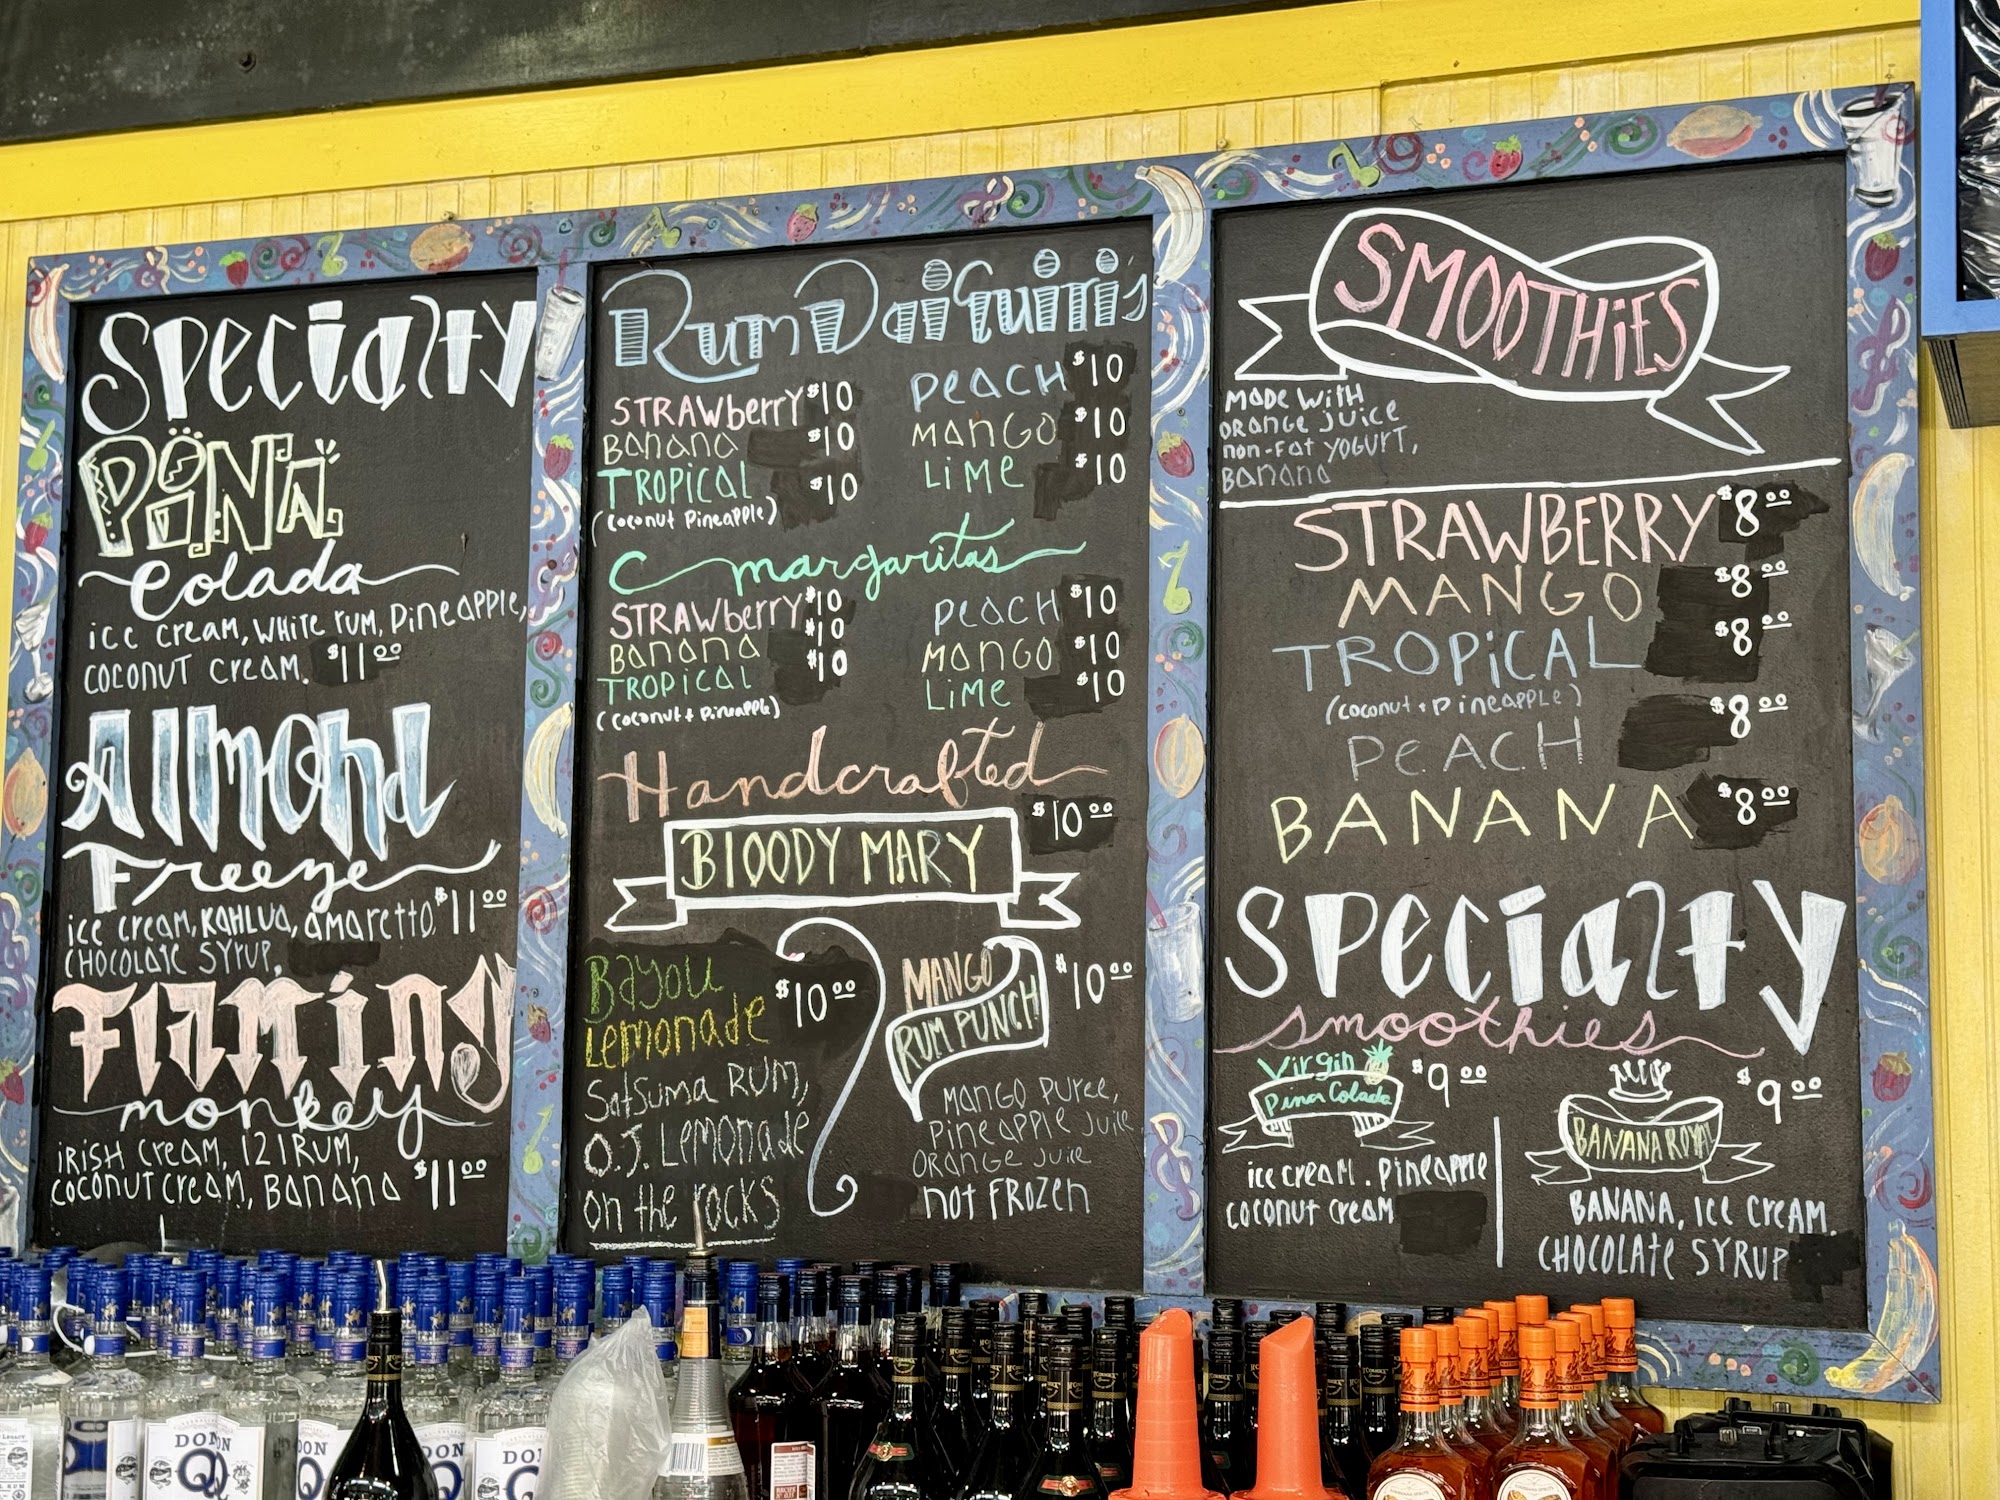 Specialty
PiNA
Colada
ice cream, WHite rum, Pineapple,
coconut cream. $11.00
Almond
Freeze
ice cream, KAHLUA, amaretto, $11.00
CHOCOLATE SYRUP.
Flaming
monkey
iRiSH Cream, 121 RUM,
COCONUT Cream, BANANA $11.00
Rum Daiquiri's
STRAWberrY $10
BANANA $10
TROPICAL $10
(Coconut Pineapple)
PEACH $10
MANGO $10
LiME $10
margaritas
STRAWberry $10
BANANA $10
TROPICAL $10
(Coconut + Pineapple)
PEACH $10
MANGO $10
LiME $10
Handcrafted
BlOODY MARY $10.00
Bayou
Lemonade $10.00
Satsuma RUM,
O.J. LEMONADE
on the rocks
MANGO
RUM PUNCH $10.00
MANGO PUREE,
PINEAPPLE JUICE
ORANGE JUICE
NOT FROZEN
SMOOTHiES
MADE WiTH
ORANGE JUICE
non-FAT YOGURT,
BANANA
STRAWBERRY $8.00
MANGO $8.00
TROPiCAL $8.00
(Coconut + Pineapple)
PEACH $8.00
BANANA $8.00
Specialty
smoothies
Virgin
Pina Colada $9.00
ice cream. pineapple
coconut cream
BANANA ROYAL $9.00
BANANA, ice cream.
CHOCOLATE SYRUP
DON
Q
DON
Q
DON
Q
DON
Q